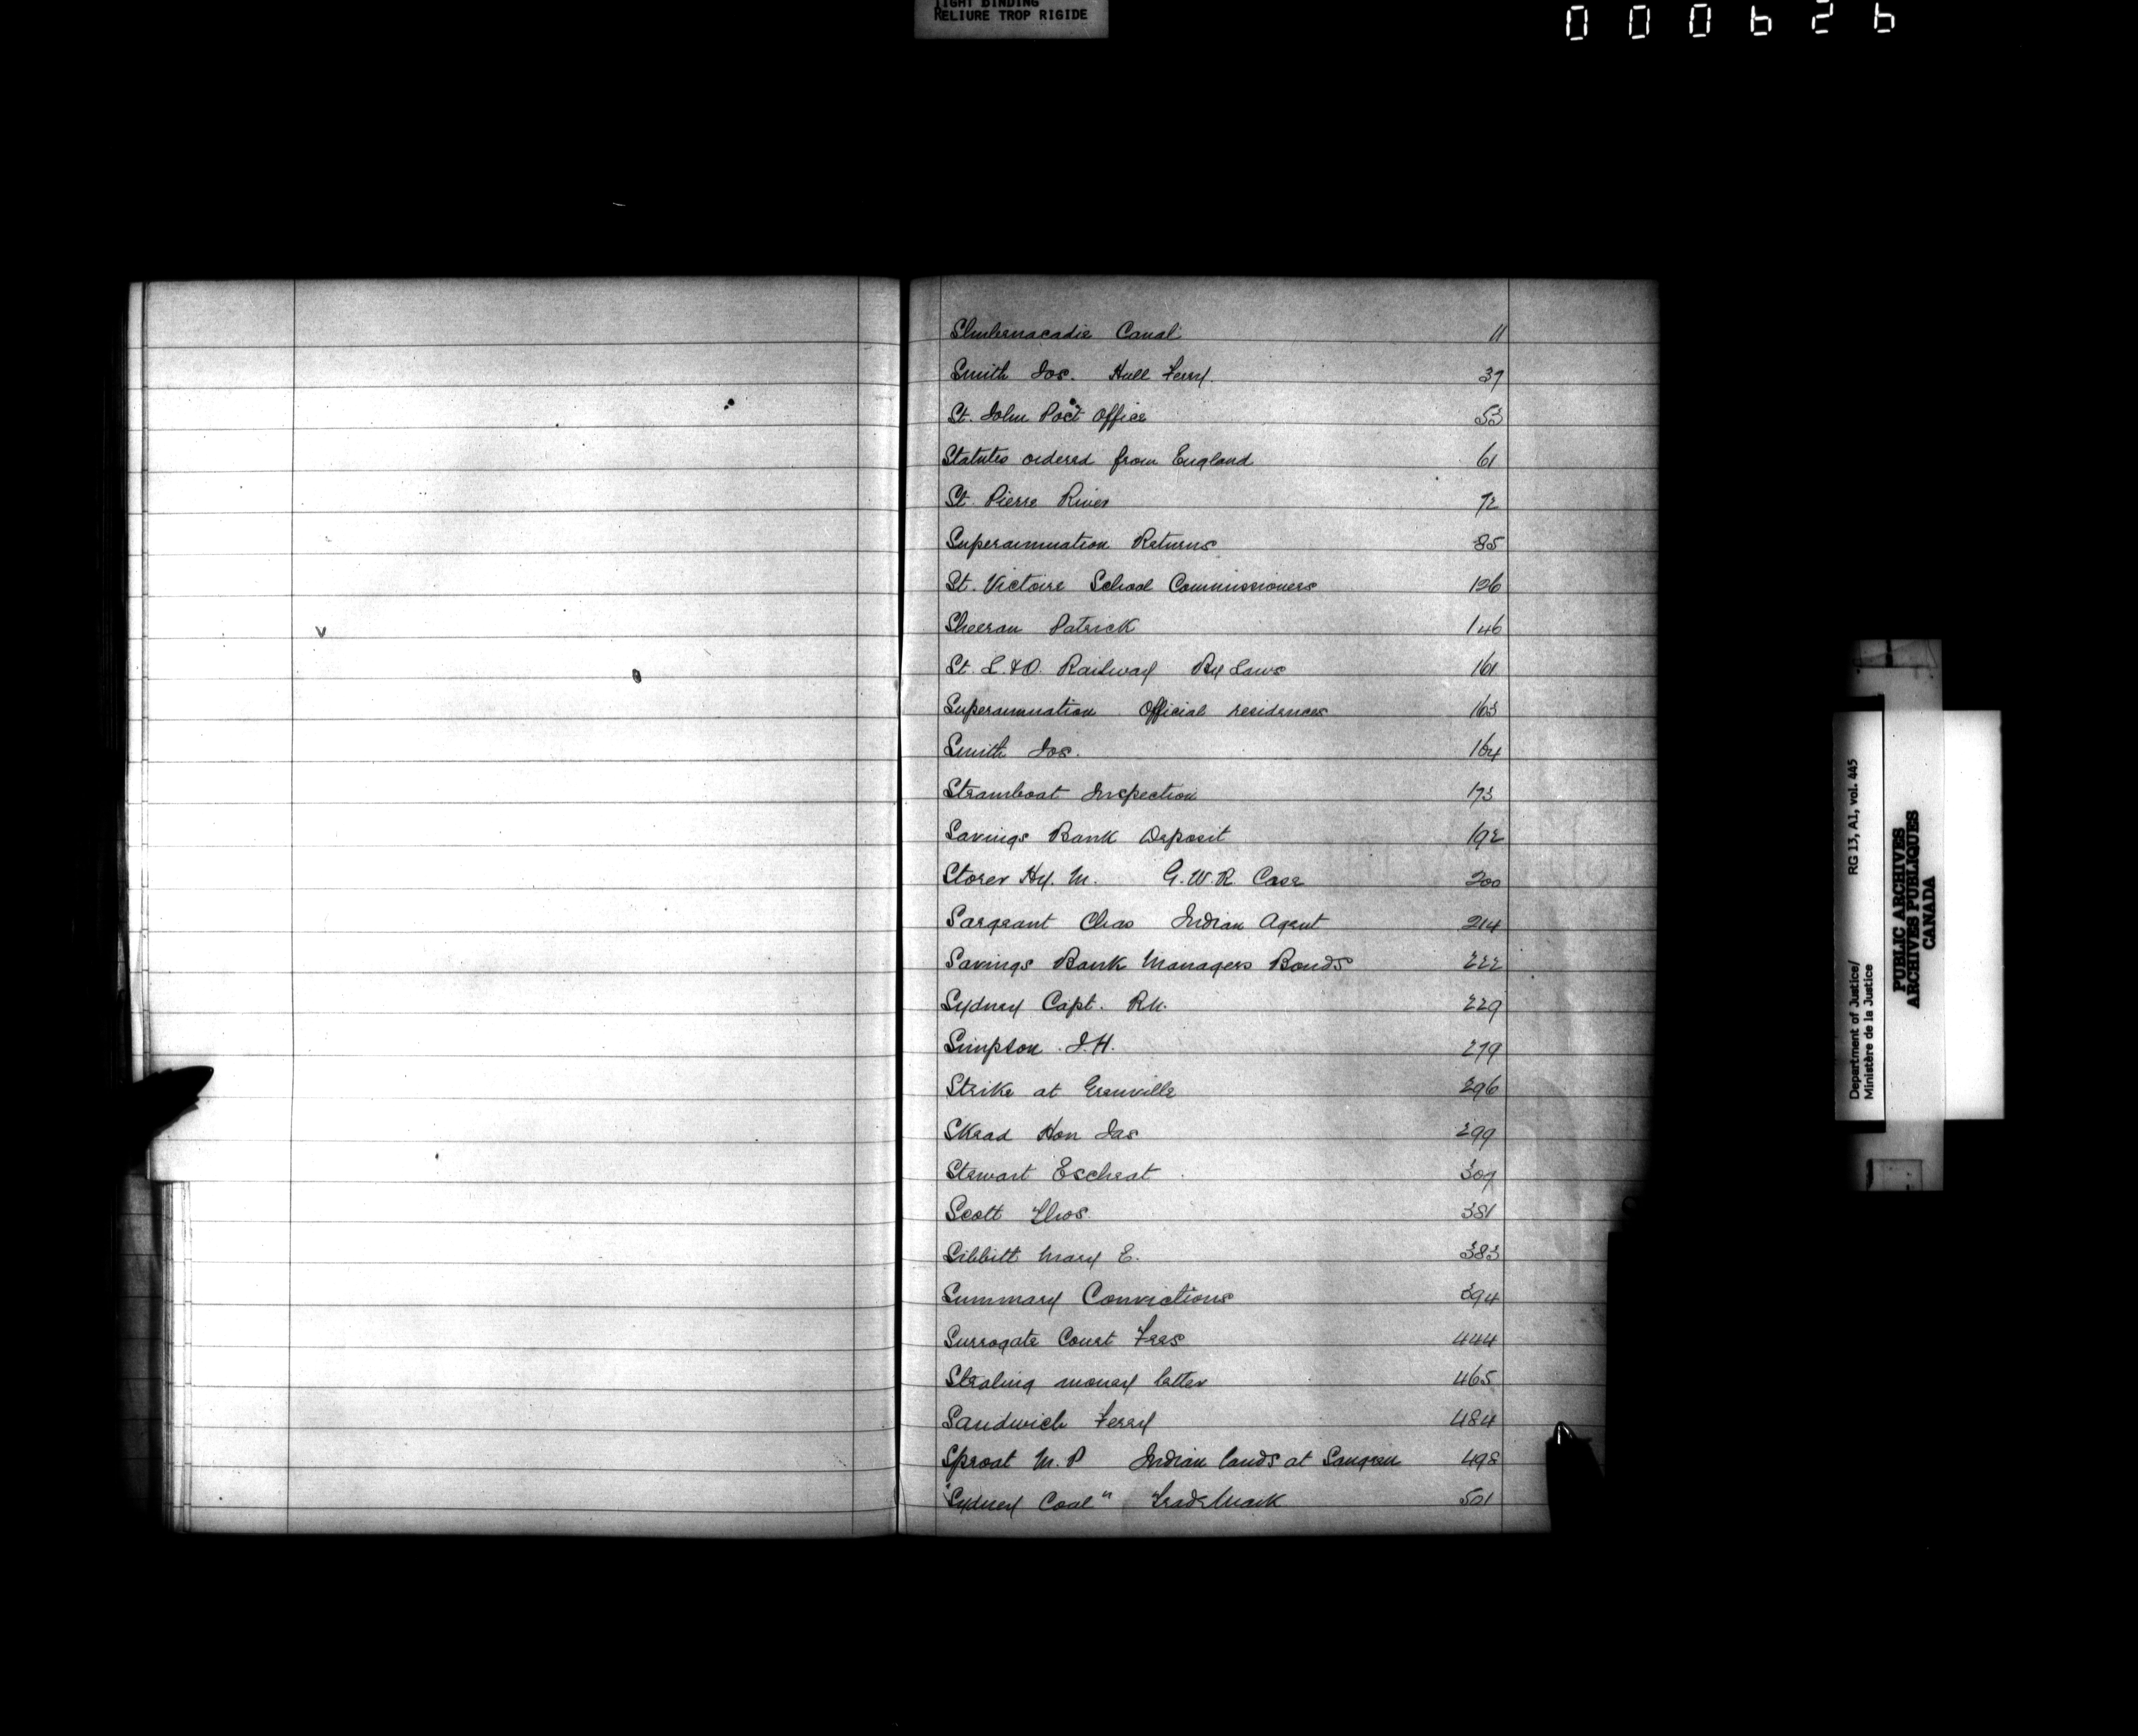 TIGHT BINDING
RELIURE TROP RIGIDE
000626
Shubenacadie Canal 11
Smith Jos. Hull Ferry. 37
St. John Post Office 53
Statutes ordered from England 61
St. Pierre River 72
Superannuation Returns 85
St. Victoire School Commissioners 126
Sheeran Patrick 146
St. L. & O. Railway By Laws 161
Superannuation Official residences 163
Smith Jos. 164
Steamboat Inspection 173
Savings Bank Deposit 192
Storer Hy. M. G. W. R. Case 200
Sargeant Chas Indian Agent 214
Savings Bank Managers Bonds 222
Sydney Capt. R.N. 229
Simpson J. H. 279
Strike at Grenville 296
Skead Hon Jas 299
Stewart Escheat 309
Scott Thos. 381
Sibbitt Mary E. 383
Summary Convictions 394
Surrogate Court Fees 444
Stealing money letter 465
Sandwich Ferry 484
Sproat M. P Indian lands at Saugeen 498
"Sydney Coal" Trade Mark 501
Department of Justice/ RG 13, A1, vol. 445
Ministère de la Justice
PUBLIC ARCHIVES
ARCHIVES PUBLIQUES
CANADA